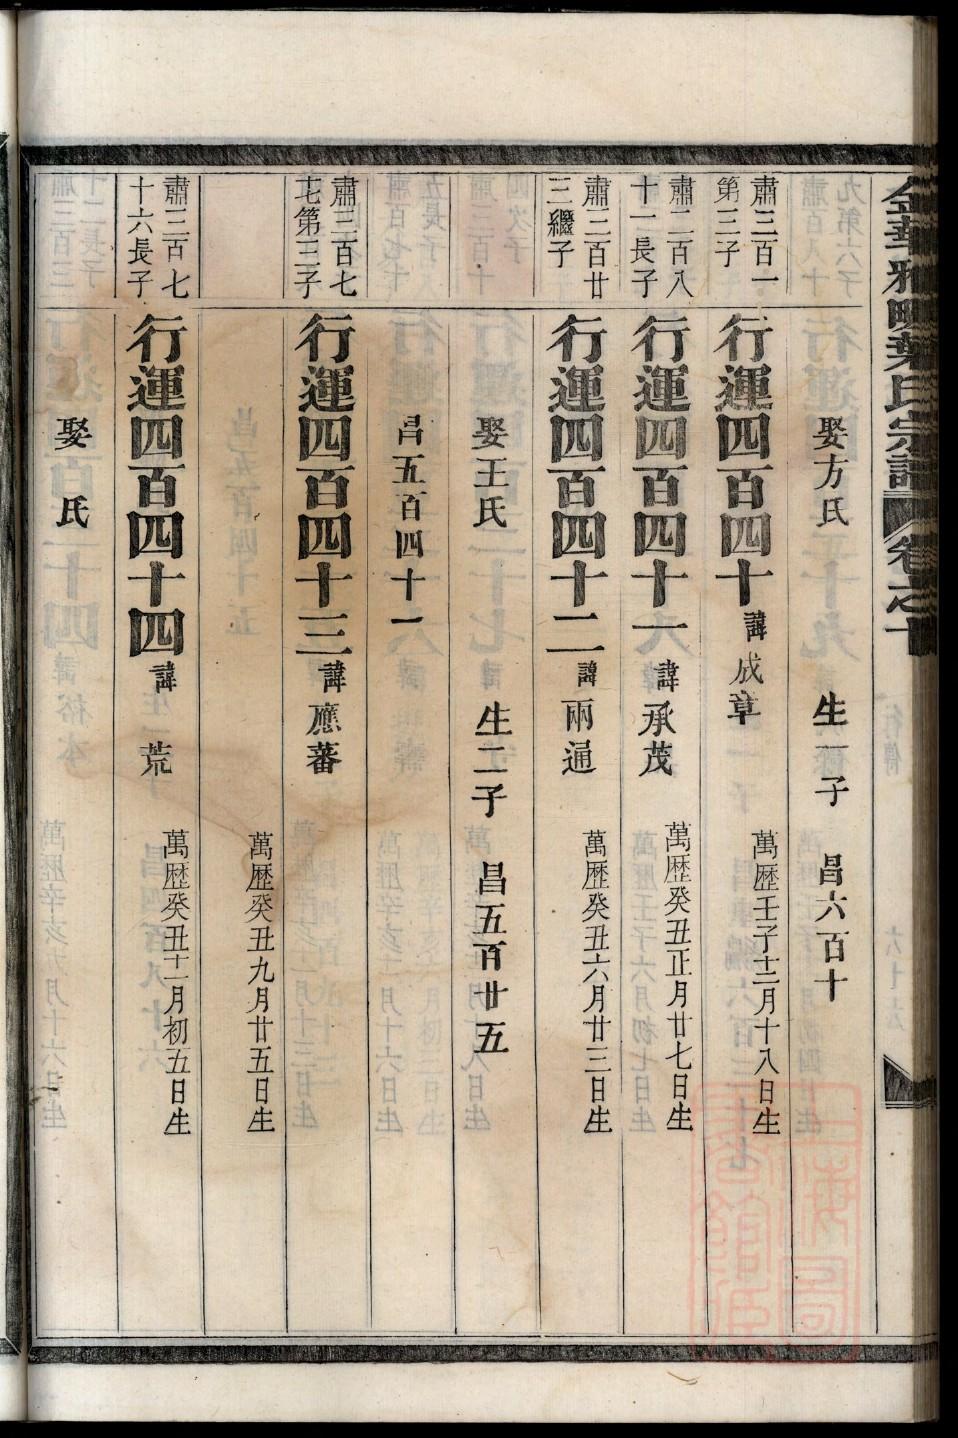 金華雅畈葉氏宗譜 卷之十
娶方氏 生一子 昌六百十
肅三百一第三子
行運四百四十 諱成章 萬歷壬子十二月十八日生
肅二百八十一長子
行運四百四十一 諱承茂 萬歷癸丑正月廿七日生
肅三百廿三繼子
行運四百四十二 諱兩通 萬歷癸丑六月廿三日生
娶王氏 生二子 昌五百廿五
昌五百四十一
肅三百七十七第三子
行運四百四十三 諱應蕃
萬歷癸丑九月廿五日生
肅三百七十六長子
行運四百四十四 諱荒 萬歷癸丑十一月初五日生
娶 氏